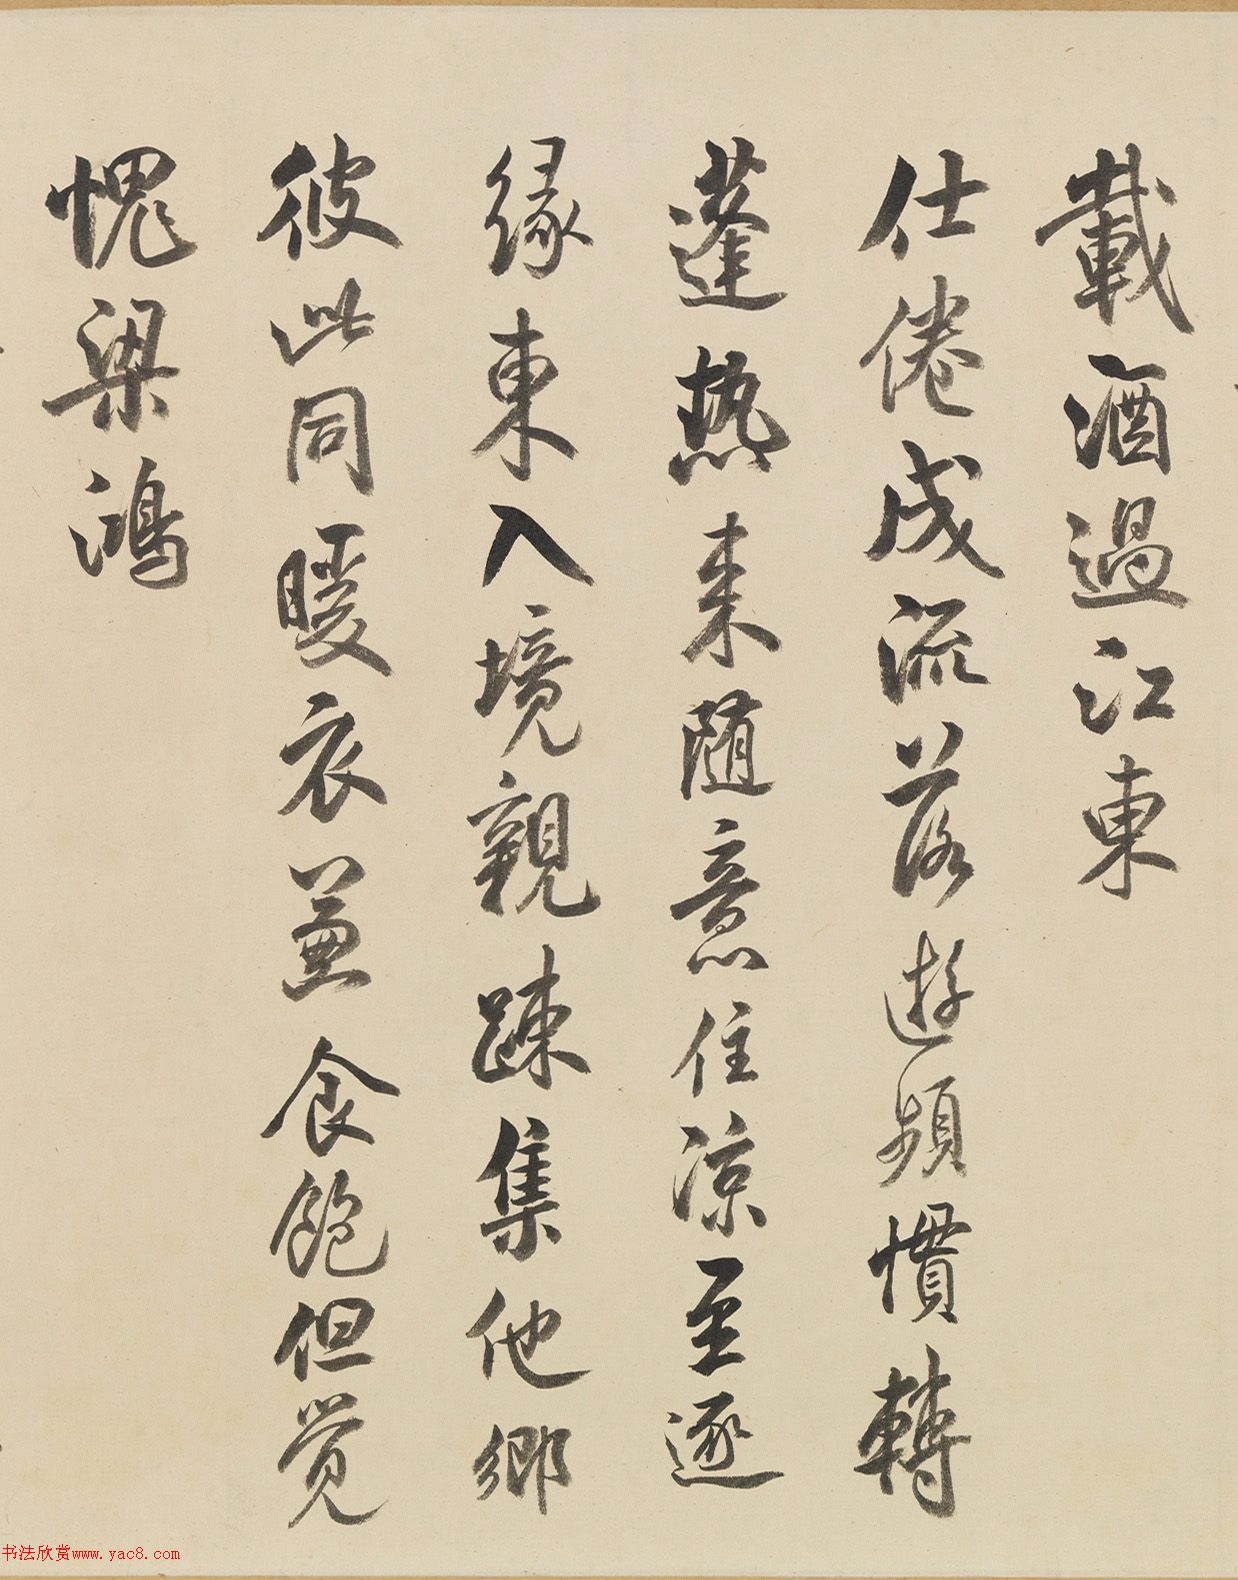 載酒過江東
仕倦成流落遊頻慣轉
蓬熱来随意住涼至逐
縁東入境親踈集他郷
彼此同暖衣兼食飽但覺
愧梁鴻
书法欣赏www.yac8.com